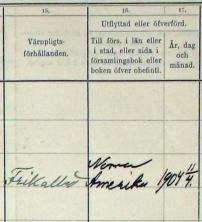 15.
16.
17.
Värnpligts-
förhållanden.
Utflyttad eller öfverförd.
Till förs. i län eller
i stad, eller sida i
församlingsbok eller
boken öfver obefintl.
År, dag
och
månad.
Frikallad
Norra
Amerika
1904 11/4.